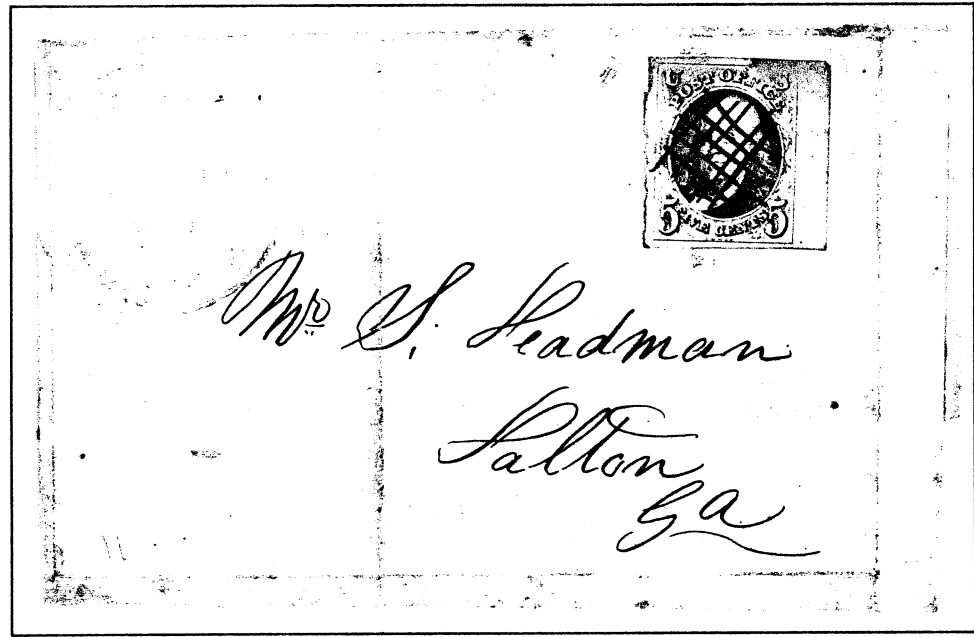 U S
POST OFFICE
5 FIVE CENTS 5
Mr S. Headman
Dalton
Ga